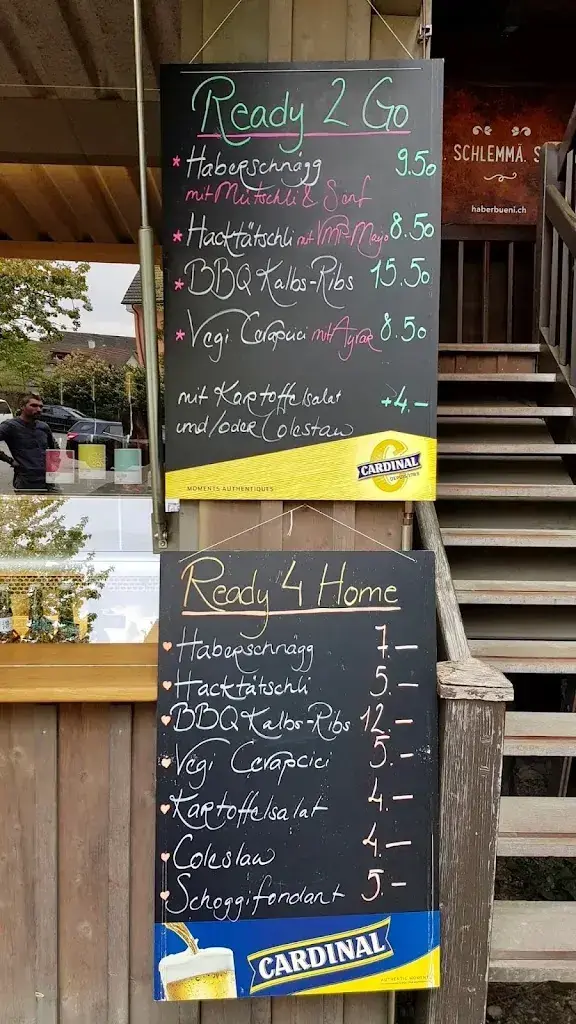 Ready 2 Go
* Haberschnägg 9.50
mit Mütschli & Senf
* Hacktätschli mit VMP-Mayo 8.50
* BBQ Kalbs-Ribs 15.50
* Vegi Cevapcici mit Ayvar 8.50
mit Kartoffelsalat +4.–
und/oder Coleslaw
MOMENTS AUTHENTIQUES
CARDINAL
SCHLEMMÄ. S
haberbueni.ch
Ready 4 Home
Haberschnägg 7.–
Hacktätschli 5.–
BBQ Kalbs-Ribs 12.–
Vegi Cevapcici 5.–
Kartoffelsalat 4.–
Coleslaw 4.–
Schoggifondant 5.–
CARDINAL